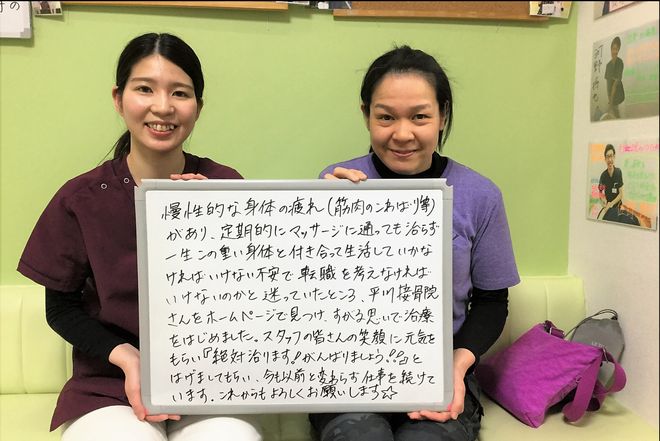 慢性的な身体の疲れ(筋肉のこわばり等)
があり、定期的にマッサージに通っても治らず
一生この重い身体と付き合って生活していかな
ければいけない不安で転職を考えなければ
いけないのかと迷っていたところ、平川接骨院
さんをホームページで見つけ、すがる思いで治療
をはじめました。スタッフの皆さんの笑顔に元気を
もらい『絶対治ります!がんばりましょう!!』と
はげましてもらい、今も以前と変わらず仕事を続けて
います。これからもよろしくお願いします☆